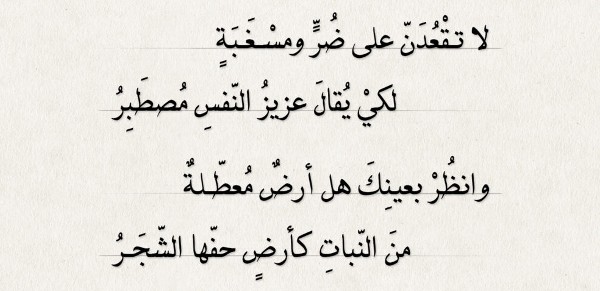 لا تـقْعُدَنّ على ضُرٍّ ومسْـغَـبَةٍ
لكيْ يُقالَ عزيزُ النّفسِ مُصطَبِرُ
وانظُرْ بعينِكَ هل أرضٌ مُعطّـلةٌ
منَ النّباتِ كأرضٍ حفّها الشّجَـرُ